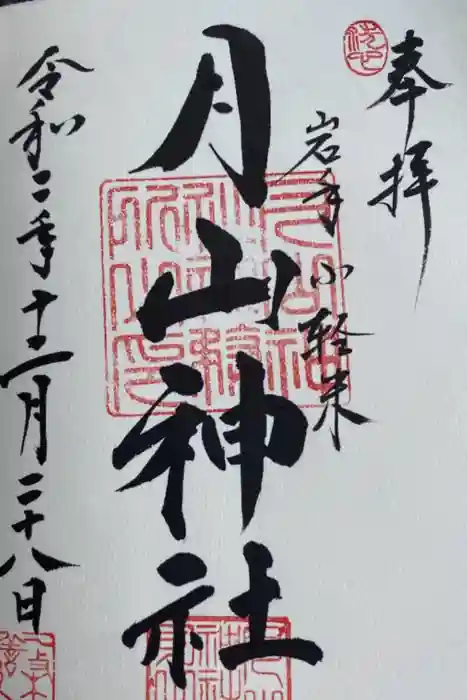 奉拝
岩手 小軽米
月山神社
令和二年十二月二十八日